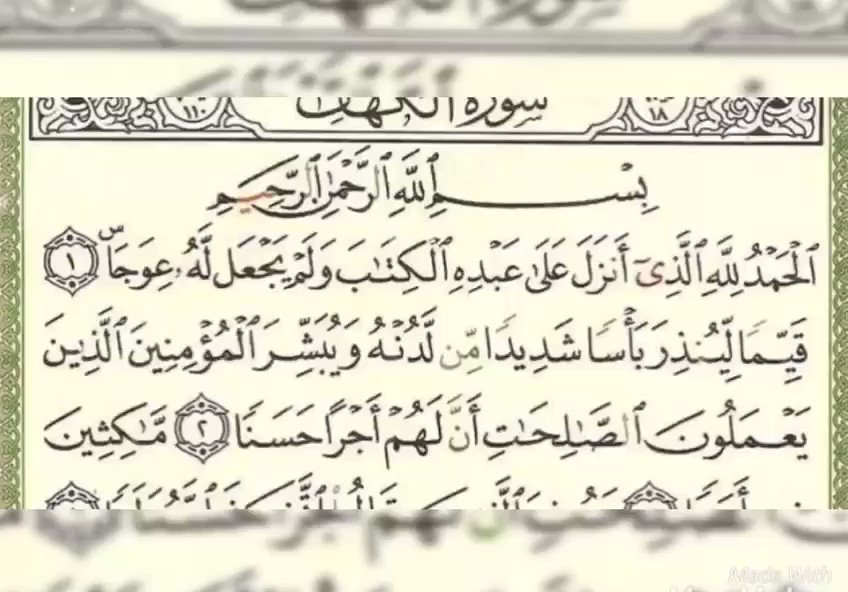 سورة الكهف
١٨
١١٠
بِسْمِ ٱللَّهِ ٱلرَّحْمَٰنِ ٱلرَّحِيمِ
ٱلْحَمْدُ لِلَّهِ ٱلَّذِىٓ أَنزَلَ عَلَىٰ عَبْدِهِ ٱلْكِتَٰبَ وَلَمْ يَجْعَل لَّهُۥ عِوَجَاۜ ١
قَيِّمًا لِّيُنذِرَ بَأْسًا شَدِيدًا مِّن لَّدُنْهُ وَيُبَشِّرَ ٱلْمُؤْمِنِينَ ٱلَّذِينَ
يَعْمَلُونَ ٱلصَّٰلِحَٰتِ أَنَّ لَهُمْ أَجْرًا حَسَنًا ٢ مَّٰكِثِينَ
Made With